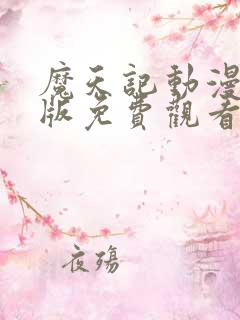 魔天記動漫
版免費觀看
夜殤